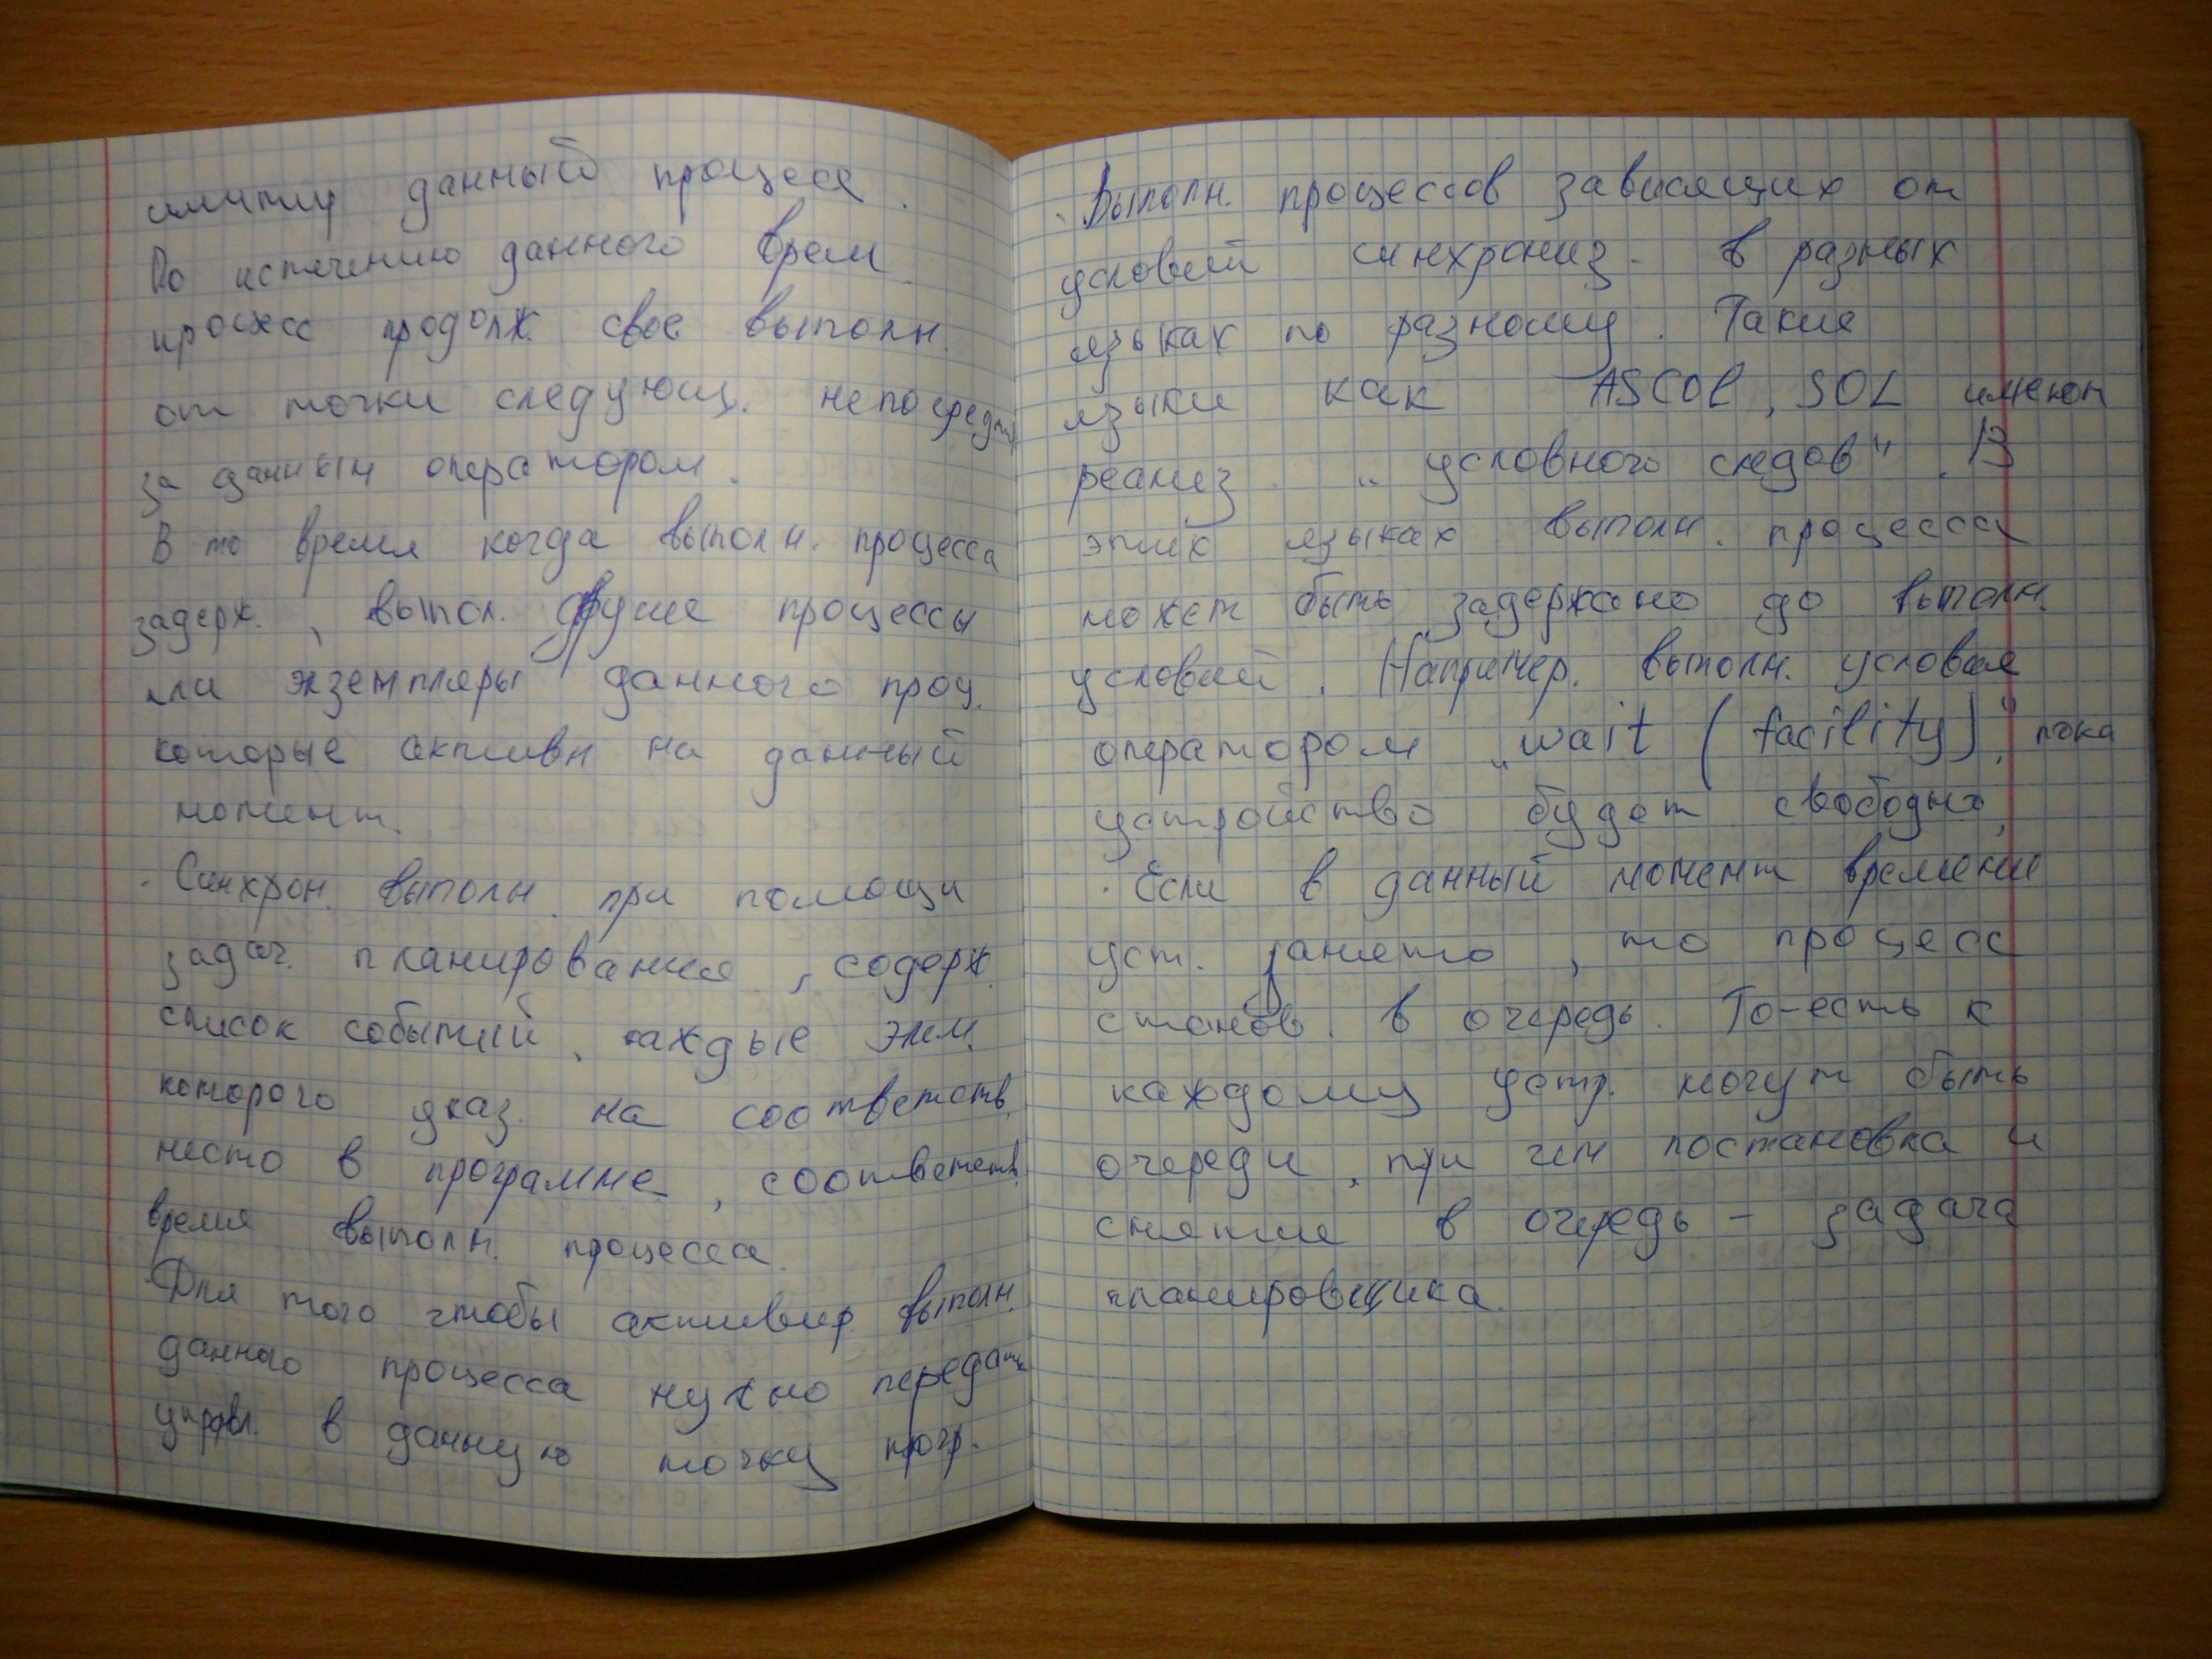 данный процесс.
По истечению данного врем.
процесс продолж. свое выполн.
от точки следующ. непосредст
за данным оператором.
В то время когда выполн. процесса
задерж., выпол. другие процессы
или экземпляры данного проц.
которые активн на данный
момент.
· Синхрон. выполн. при помощи
задач. планирования, содерж.
список событий, каждые элем.
которого указ. на соответств.
место в программе, соответств.
время выполн. процесса.
· Для того чтобы активир. выполн.
данного процесса нужно передать
управл. в данную точку прогр.
· Выполн. процессов зависящих от
условий синхрониз. в разных
языках по разному. Такие
языки как ASCOL, SOL имеют
реализ. „условного следов“. В
этих языках выполн. процесса
может быть задержано до выполн.
условий. Например. выполн. условия
оператором „wait (facility)“, пока
устройство будет свободно,
· Если в данный момент времени
уст. занято, то процесс
станов. в очередь. То-есть к
каждому устр. могут быть
очереди, при чем постановка и
снятие в очередь - задача
планировщика.